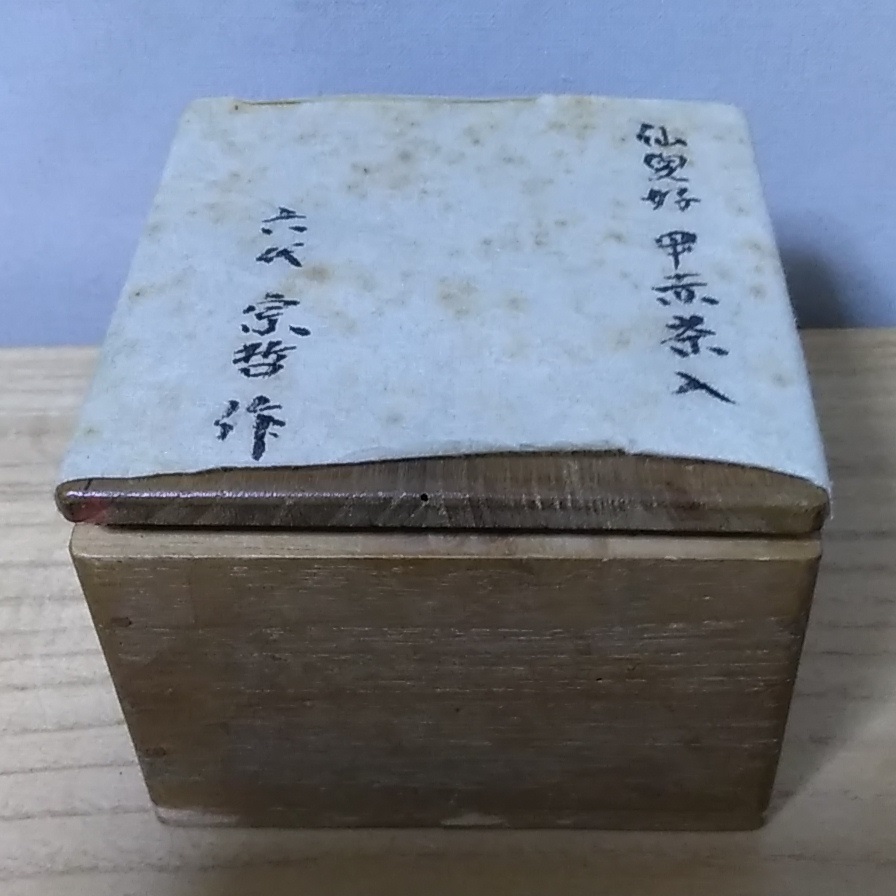 仙叟好 甲赤茶入
六代 宗哲 作